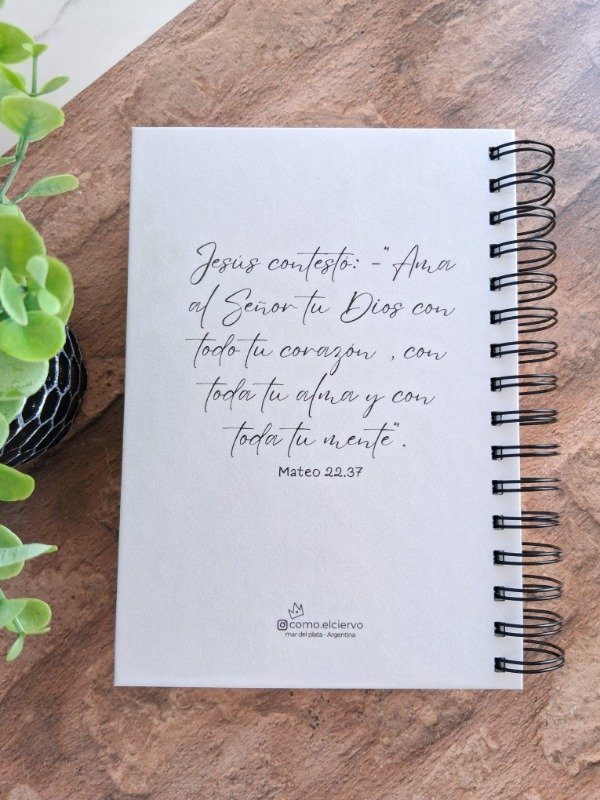 Jesús contestó: -"Ama
al Señor tu Dios con
todo tu corazón , con
toda tu alma y con
toda tu mente".
Mateo 22.37
como.elciervo
mar del plata - Argentina